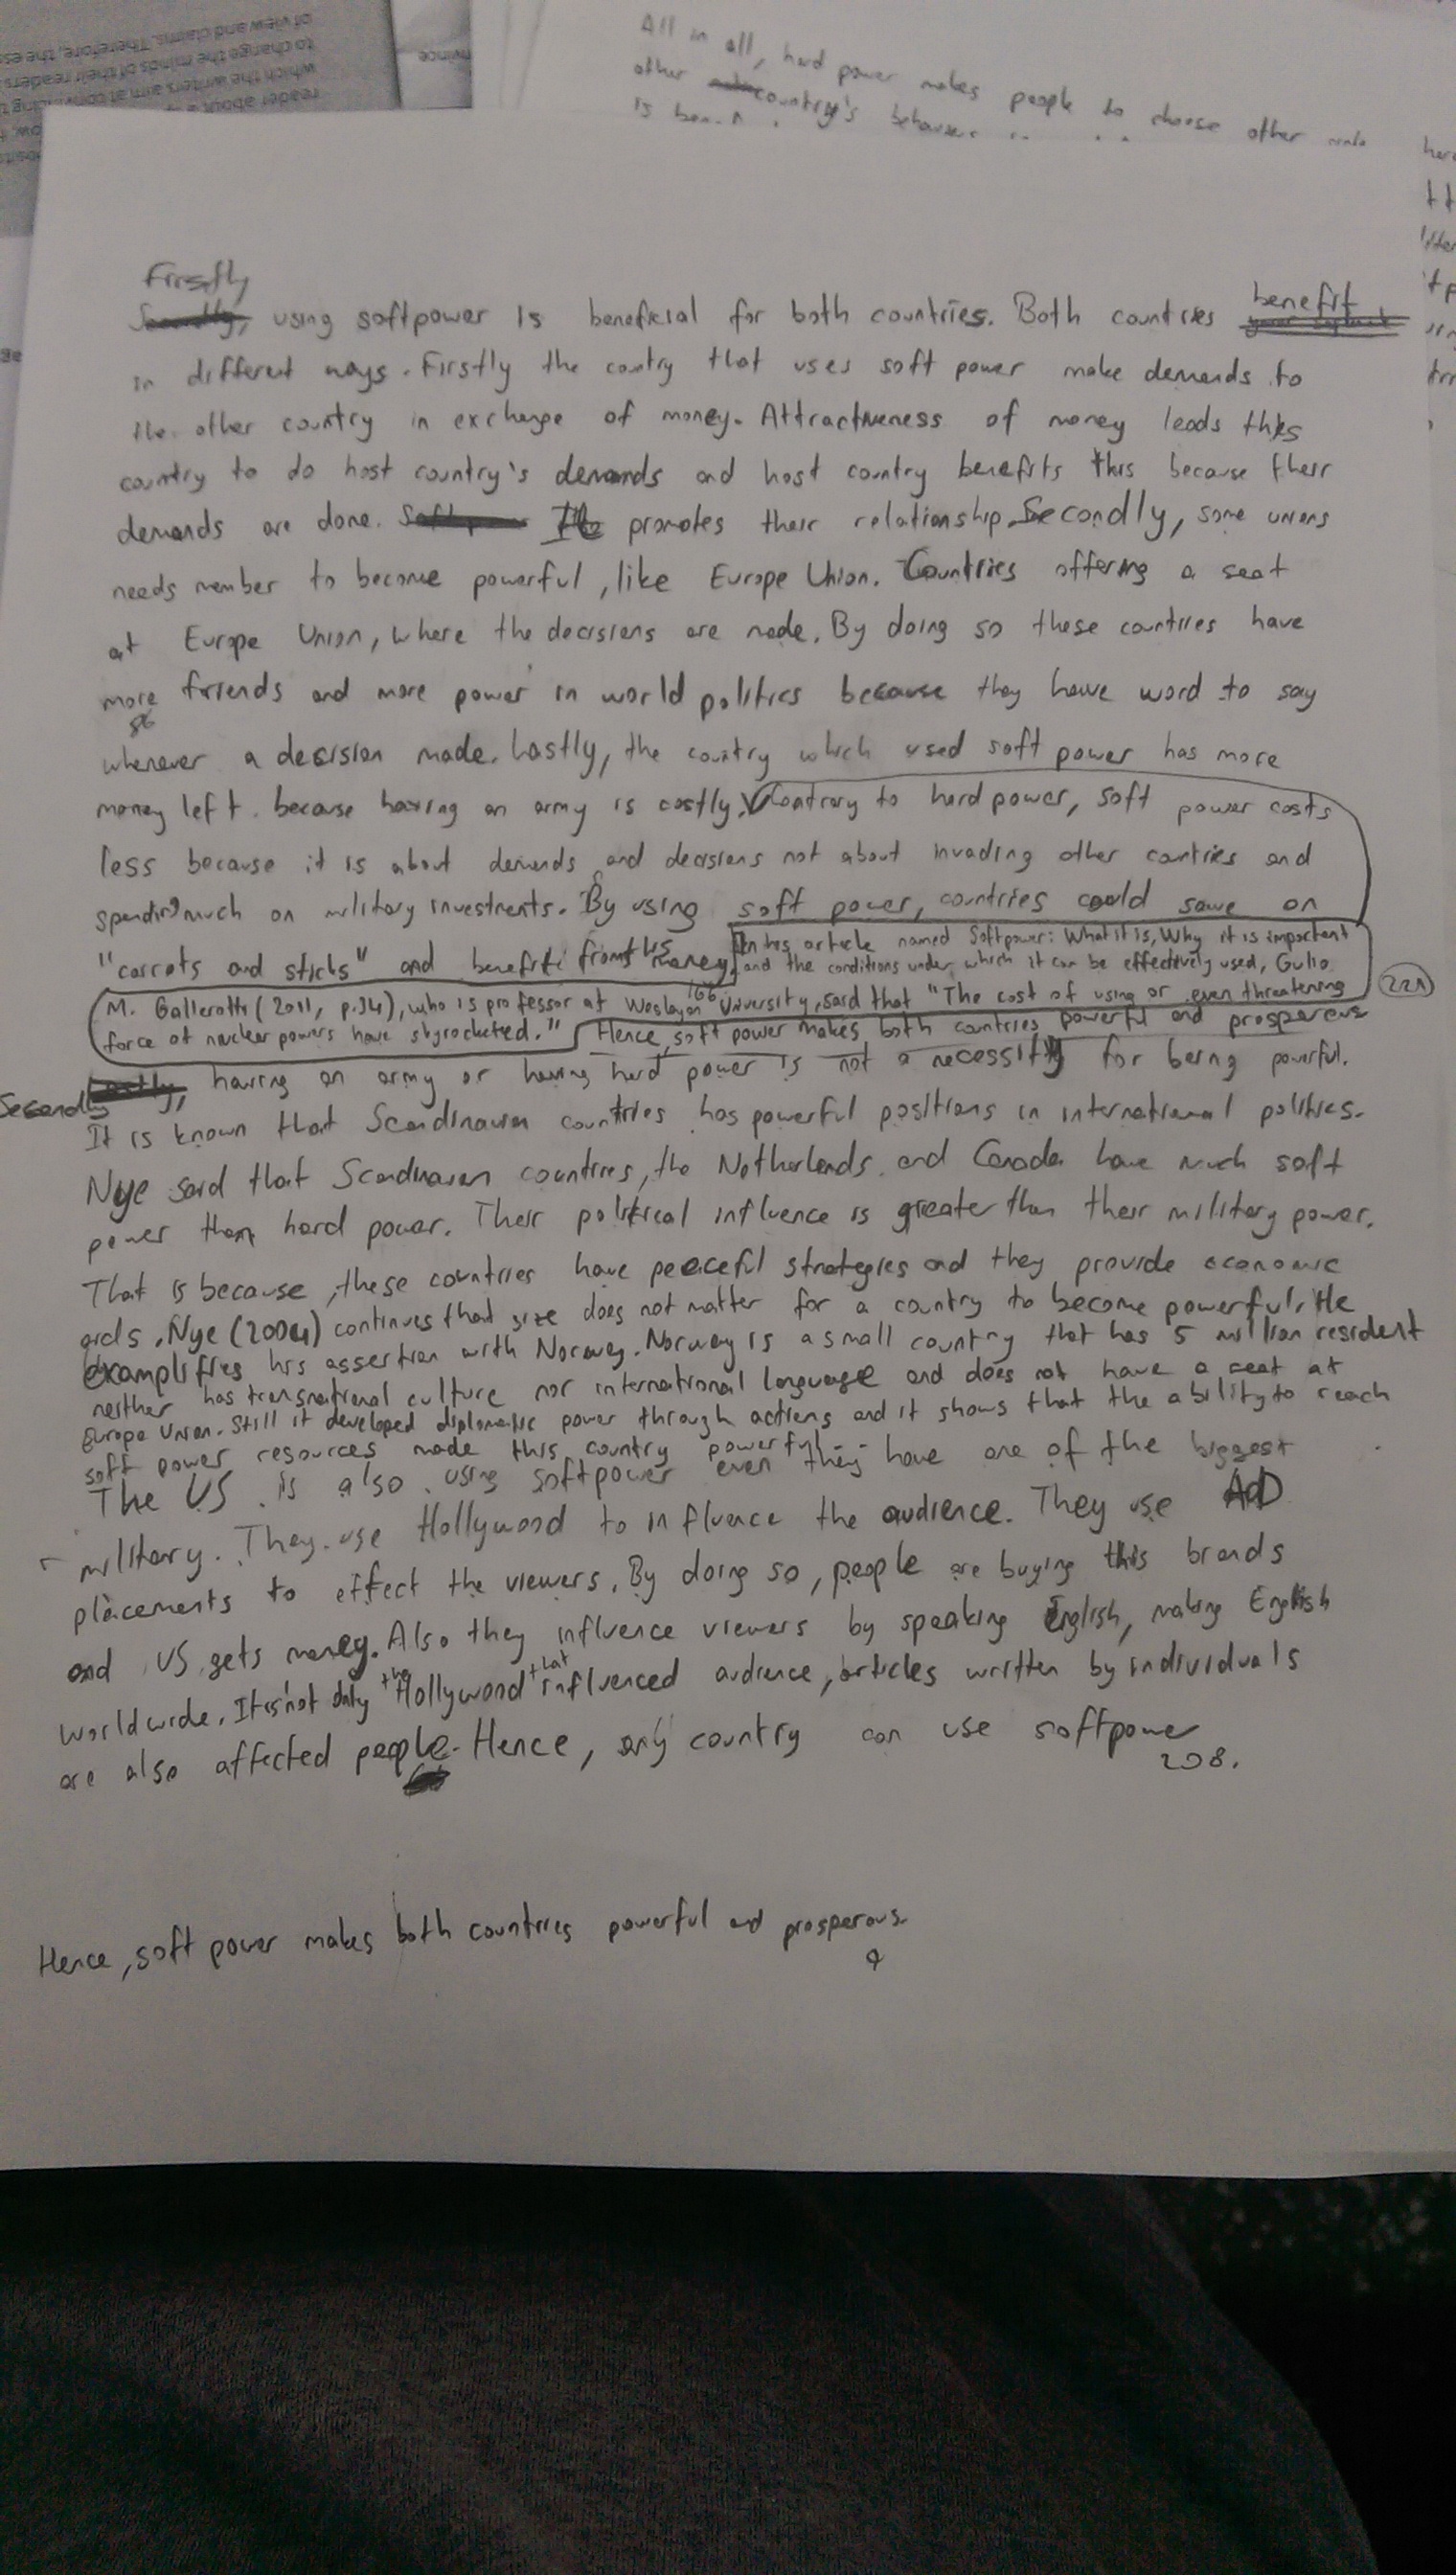 of view and claims. Therefore, the ess
to change the minds of their readers
which the writers aim at convincing t
reader about a
All in all, hard power makes people to choose other
other country's behaviour
is
Firstly
using softpower is beneficial for both countries. Both countries benefit
in different ways. Firstly the country that uses soft power make demands to
the other country in exchange of money. Attractiveness of money leads this
country to do host country's demands and host country benefits this because their
demands are done. It promotes their relationship. Secondly, some unions
needs member to become powerful, like Europe Union. Countries offering a seat
at Europe Union, where the decisions are made. By doing so these countries have
more friends and more power in world politics because they have word to say
86
whenever a decision made. Lastly, the country which used soft power has more
money left. because having an army is costly. Contrary to hard power, soft power costs
less because it is about demands and decisions not about invading other contries and
spending much on military investments. By using soft power, countries could save on
"carrots and sticks" and benefit from this money. In his article named Softpower: What it is, Why it is important
and the conditions under which it can be effectively used, Gulio
M. Gallerotti (2011, p.34), who is professor at Wesleyan University, said that "The cost of using or even threatening
166
221
force at nuclear powers have skyrocketed." Hence, soft power makes both countries powerful and prosperous
Secondly having an army or having hard power is not a necessity for being powerful.
It is known that Scandinavian countries has powerful positions in international politics.
Nye said that Scandinavian countries, the Netherlands and Canada have much soft
power than hard power. Their political influence is greater than their military power.
That is because, these countries have peaceful strategies and they provide economic
aids. Nye (2004) continues that size does not matter for a country to become powerful. He
examplifies his assertion with Norway. Norway is a small country that has 5 million resident
neither has transnational culture nor international language and does not have a seat at
Europe Union. Still it developed diplomatic power through actions and it shows that the ability to reach
soft power resources made this country powerful.
The US is also using softpower even they have one of the biggest
military. They use Hollywood to influence the audience. They use AD
placements to effect the viewers. By doing so, people are buying this brands
and US gets money. Also they influence viewers by speaking English, making English
worldwide. It is not only the Hollywood that influenced audience, articles written by individuals
are also affected people. Hence, any country can use softpower
208.
Hence, soft power makes both countries powerful and prosperous.